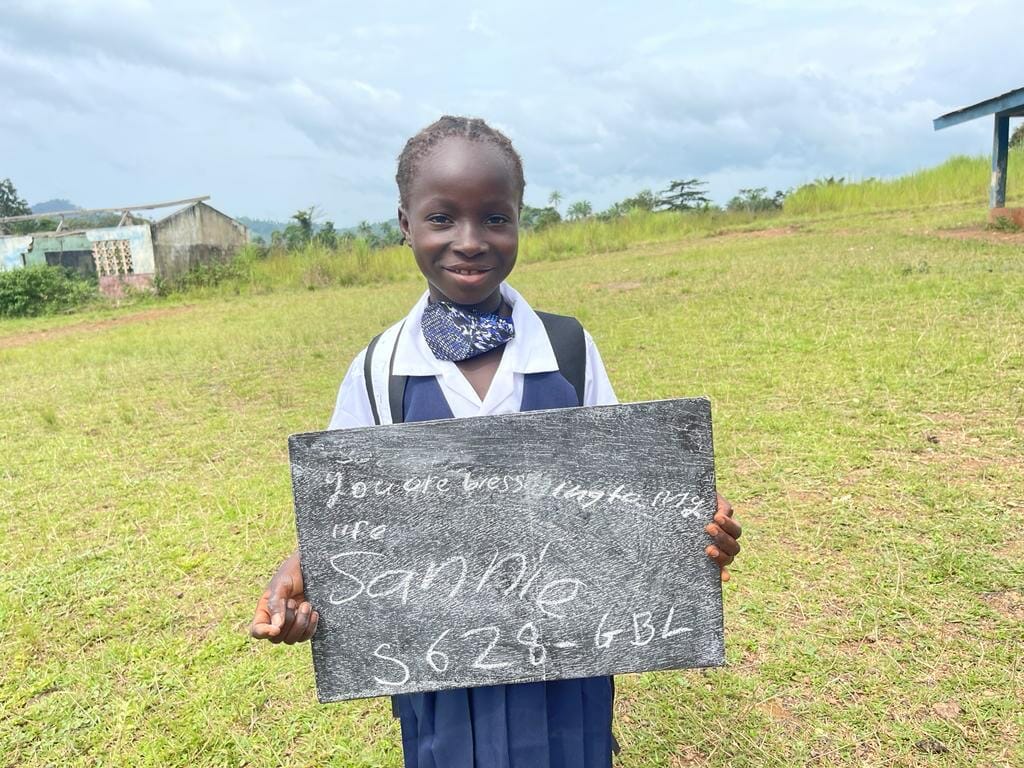 You are bressingto my
life
Sannie
S628-GBL